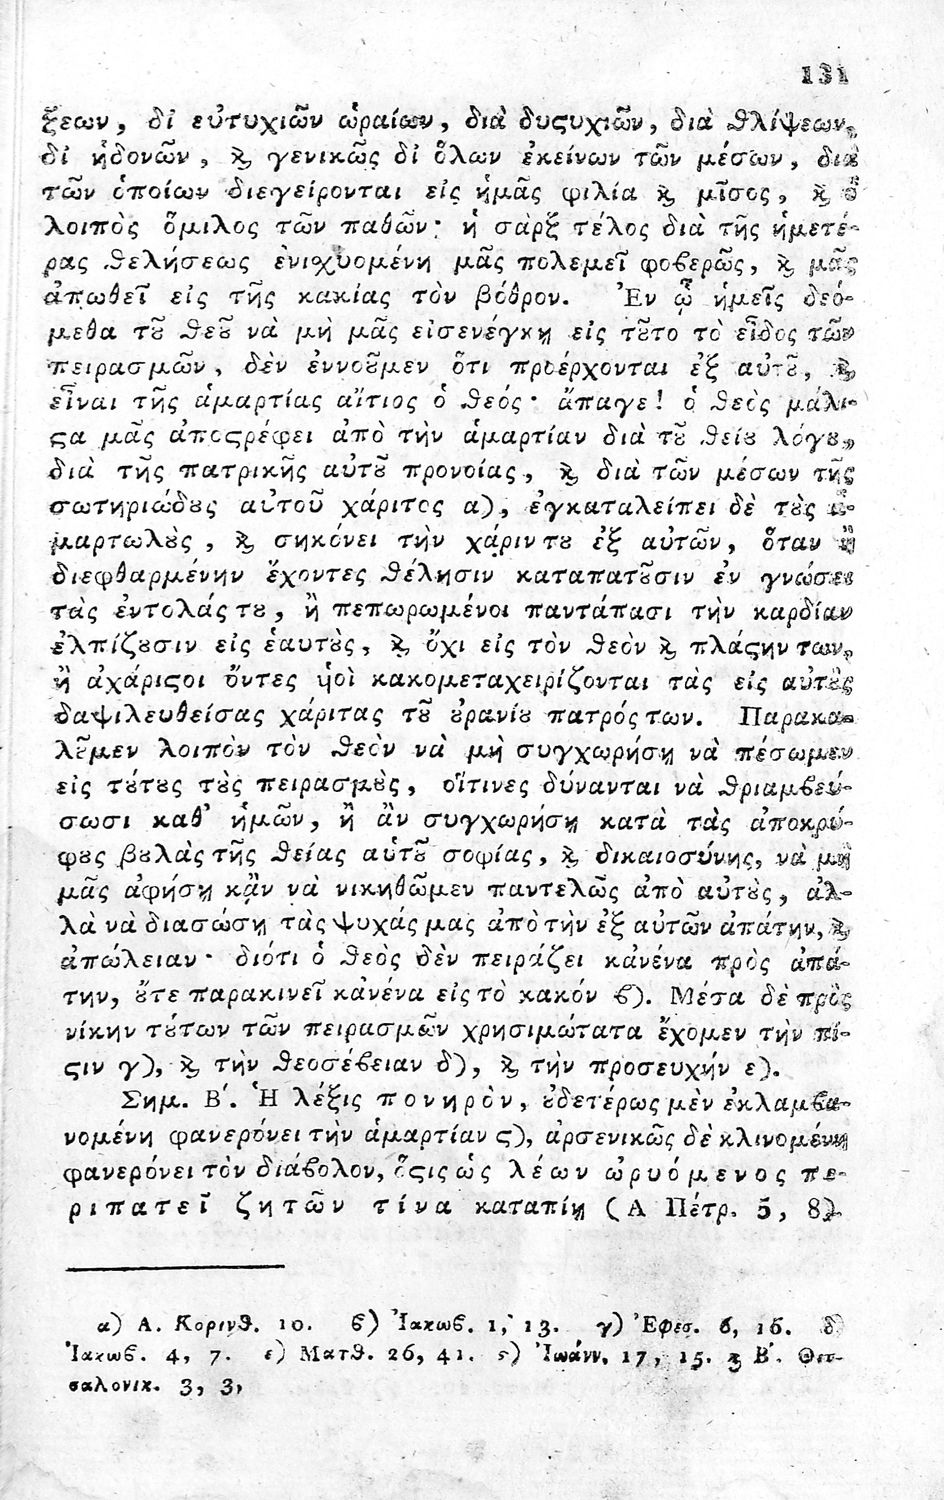 131
ξεων, δἰ εὐτυχιῶν ὡραίων, διὰ δυςυχιῶν, διὰ θλίψεων,
δἰ ἡδονῶν, ϗ γενικῶς δἰ ὅλων ἐκείνων τῶν μέσων, διὰ
τῶν ὁποίων διεγείρονται εἰς ἡμᾶς φιλία ϗ μῖσος, ϗ ὁ
λοιπὸς ὅμιλος τῶν παθῶν· ἡ σὰρξ τέλος διὰ τῆς ἡμετέ-
ρας θελήσεως ἐνισχυομένη μᾶς πολεμεῖ φοβερῶς, ϗ μᾶς
ἀπωθεῖ εἰς τῆς κακίας τὸν βόθρον. Ἐν ᾧ ἡμεῖς δεό-
μεθα τȣ͂ θεȣ͂ νὰ μὴ μᾶς εἰσενέγκῃ εἰς τȣ͂το τὸ εἶδος τῶν
πειρασμῶν, δὲν ἐννοȣ͂μεν ὅτι προέρχονται ἐξ αὐτȣ͂, ϗ
εἶναι τῆς ἁμαρτίας αἴτιος ὁ θεός· ἄπαγε! ὁ θεὸς μάλι-
ςα μᾶς ἀποςρέφει ἀπὸ τὴν ἁμαρτίαν διὰ τȣ͂ θείȣ λόγȣ,
διὰ τῆς πατρικῆς αὑτȣ͂ προνοίας, ϗ διὰ τῶν μέσων τῆς
σωτηριώδȣς αὑτοῦ χάριτος α), ἐγκαταλείπει δὲ τȣ̀ς ἁ-
μαρτωλȣ̀ς, ϗ σηκόνει τὴν χάριν τȣ ἐξ αὐτῶν, ὅταν ἢ
διεφθαρμένην ἔχοντες θέλησιν καταπατȣ͂σιν ἐν γνώσει
τὰς ἐντολάς τȣ, ἢ πεπωρωμένοι παντάπασι τὴν καρδίαν
ἐλπίζȣσιν εἰς ἑαυτȣ̀ς, ϗ ὄχι εἰς τὸν θεὸν ϗ πλάςην των,
ἢ ἀχάριςοι ὄντες ὑοὶ κακομεταχειρίζονται τὰς εἰς αὐτȣ̀ς
δαψιλευθείσας χάριτας τȣ͂ ȣ̓ρανίȣ πατρός των. Παρακα-
λȣ͂μεν λοιπὸν τὸν θεὸν νὰ μὴ συγχωρήσῃ νὰ πέσωμεν
εἰς τȣ́τȣς τȣ̀ς πειρασμȣ̀ς, οἵτινες δύνανται νὰ θριαμβεύ-
σωσι καθ' ἡμῶν, ἢ ἂν συγχωρήσῃ κατὰ τὰς ἀποκρύ-
φȣς βȣλὰς τῆς θείας αὑτȣ͂ σοφίας, ϗ δικαιοσύνης, νὰ μὴ
μᾶς ἀφήσῃ κἂν νὰ νικηθῶμεν παντελῶς ἀπὸ αὐτȣ̀ς, ἀλ-
λὰ νὰ διασώσῃ τὰς ψυχάς μας ἀπὸ τὴν ἐξ αὐτῶν ἀπάτην, ϗ
ἀπώλειαν· διότι ὁ θεὸς δὲν πειράζει κἀνένα πρὸς ἀπά-
την, ȣ̓́τε παρακινεῖ κἀνένα εἰς τὸ κακόν β). Μέσα δὲ πρὸς
νίκην τȣ́των τῶν πειρασμῶν χρησιμώτατα ἔχομεν τὴν πί-
ςιν γ), ϗ τὴν θεοσέβειαν δ), ϗ τὴν προσευχήν ε).
Σημ. Β'. Ἡ λέξις πονηρὸν, ȣ̓δετέρως μὲν ἐκλαμβα-
νομένη φανερόνει τὴν ἁμαρτίαν ς), ἀρσενικῶς δὲ κλινομένη
φανερόνει τὸν διάβολον, ὅςις ὡς λέων ὠρυόμενος πε-
ριπατεῖ ζητῶν τίνα καταπίῃ (Α Πέτρ. 5, 8).
α) Α. Κορινθ. 10. β) Ἰακωβ. 1, 13. γ) Ἐφεσ. 6, 16. δ)
Ἰακωβ. 4, 7. ε) Ματθ. 26, 41. ς) Ἰωάνν. 17, 15. ϗ Β'. Θεσ-
σαλονικ. 3, 3,